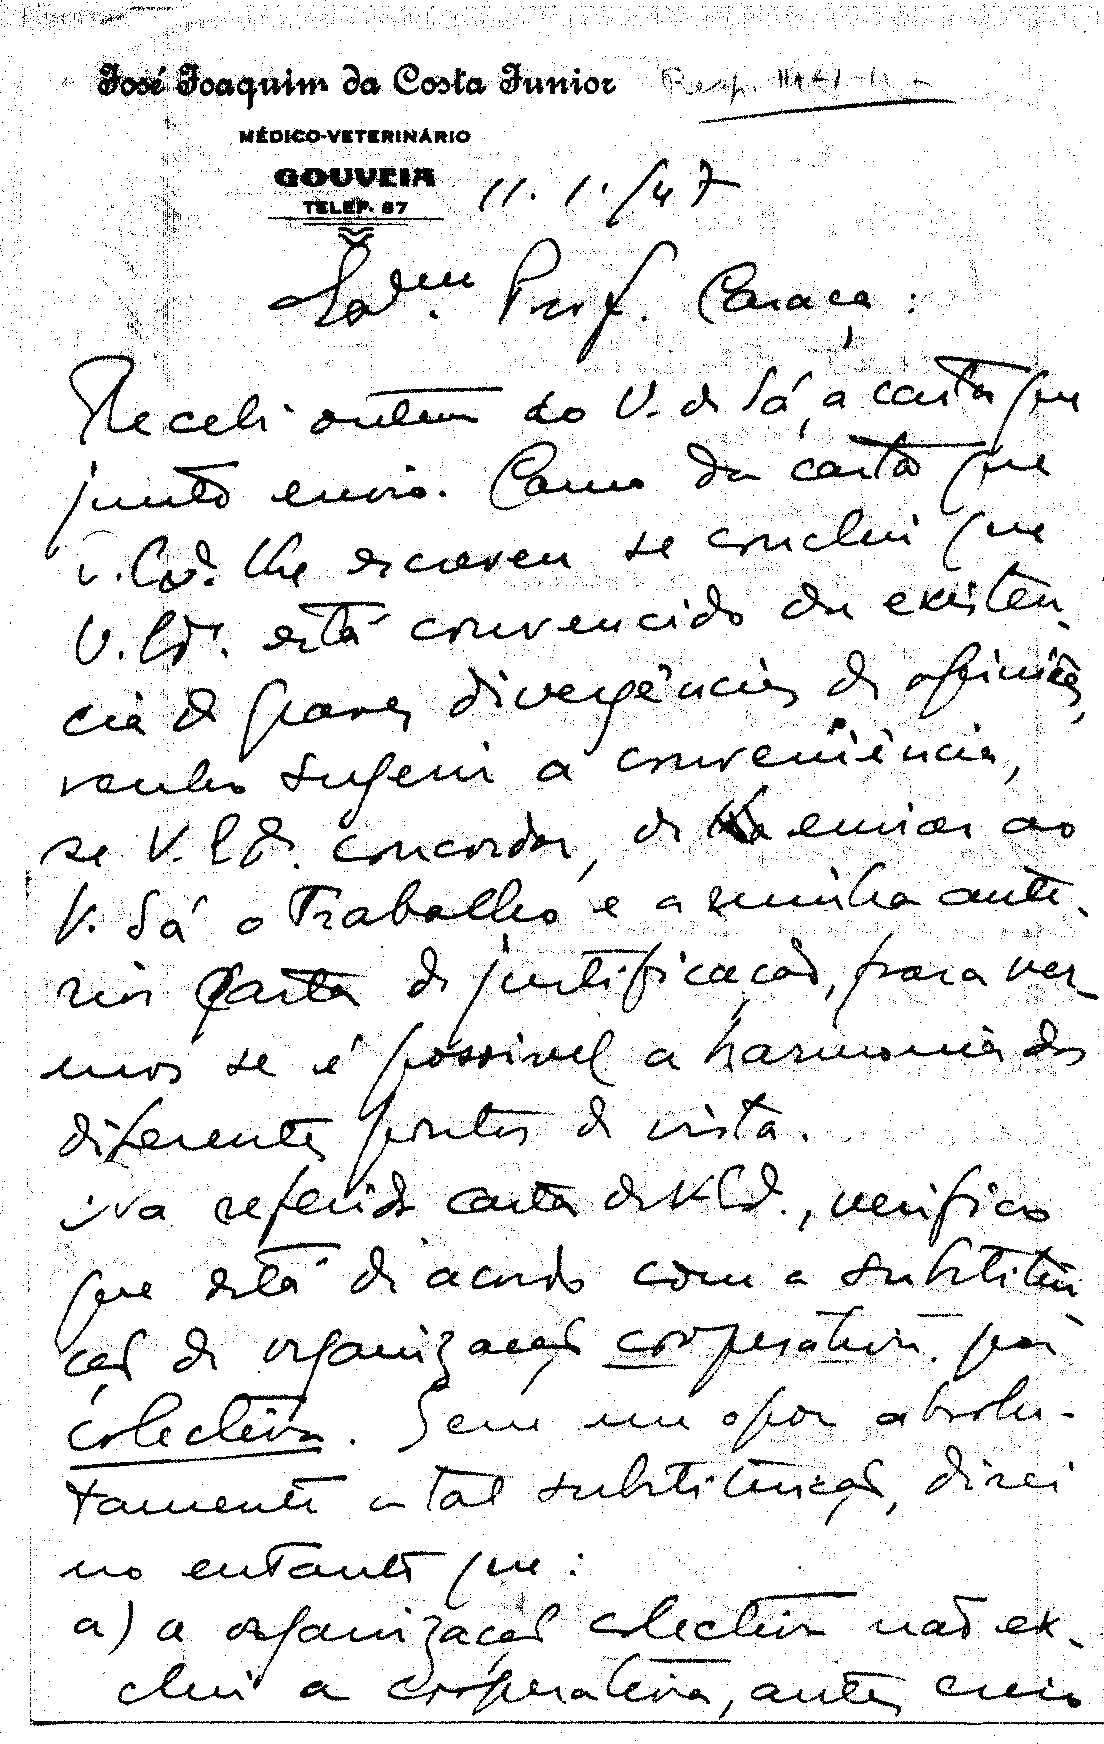 José Joaquim da Costa Junior Resp.
MÉDICO-VETERINÁRIO
GOUVEIA
TELEF. 87
11.1./47
Prof. Caraça:
Recebi ontem do V. de Sá, a carta que
junto envio. Como da carta que
V. Exª. lhe escreveu se conclui que
V. Exª. está convencido da existên-
cia de graves divergências de opiniões,
venho sugerir a conveniência,
se V. Exª. concordar, de enviar ao
V. Sá o Trabalho e a minha ante-
rior carta de justificação, para ver-
mos se é possivel a harmonia dos
diferentes pontos de vista.
Na referida carta de V. Exª., verifico
que está de acordo com a substitui-
ção de organização cooperativa por
colectiva. Sem me opor absolu-
tamente a tal substituição, direi
no entanto que:
a) a organização colectiva não ex-
clui a cooperativa, antes creio